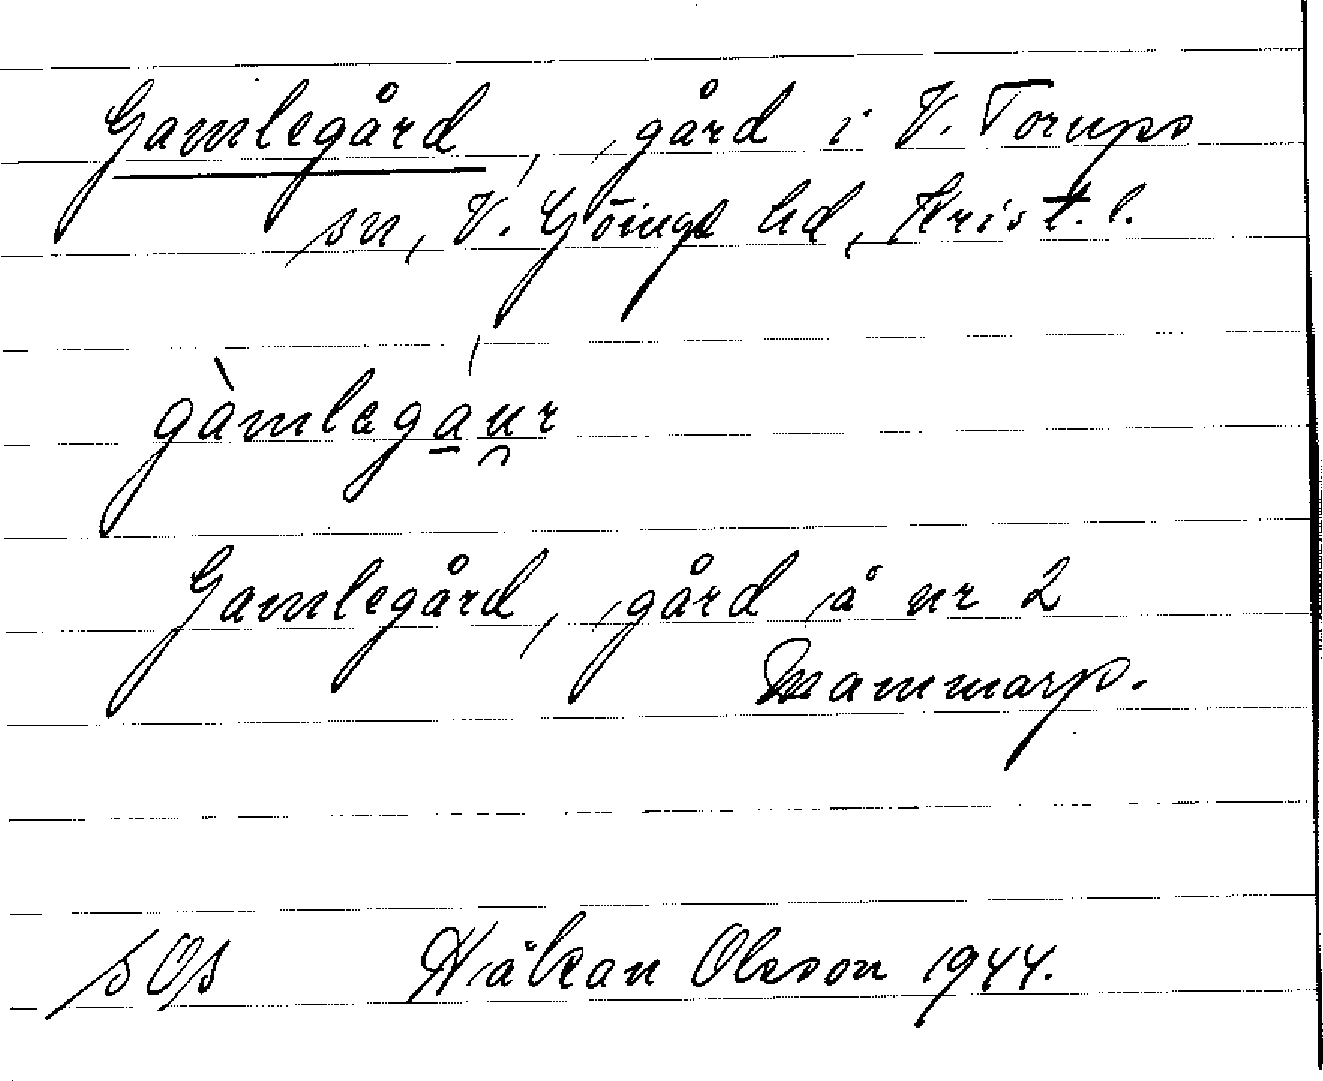 Gamlegård, gård i V. Torups
sn, V. Göinge hd, Krist. l.
gàmlega̲ú̯r
Gamlegård, gård å nr 2
Mammarp.
SOS Håkan Olsson 1944.